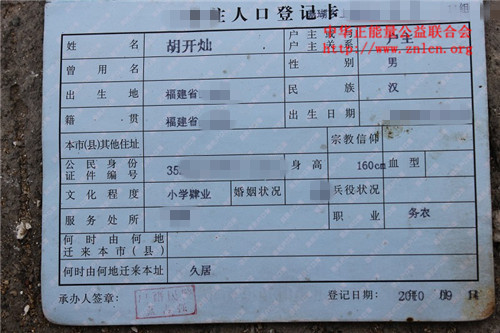 主人口登记卡
中华正能量公益联合会
www.znlcn.org
组
姓名 胡开灿 户主或与户主关系 户主
曾用名 性别 男
出生地 福建省 民族 汉
籍贯 福建省 出生日期
本市(县)其他住址 宗教信仰
公民身份证件编号 35 身高 160cm 血型
文化程度 小学肄业 婚姻状况 兵役状况
服务处所 职业 务农
何时由何地迁来本市(县)
何时由何地迁来本址 久居
承办人签章： 登记日期： 2010 09 14